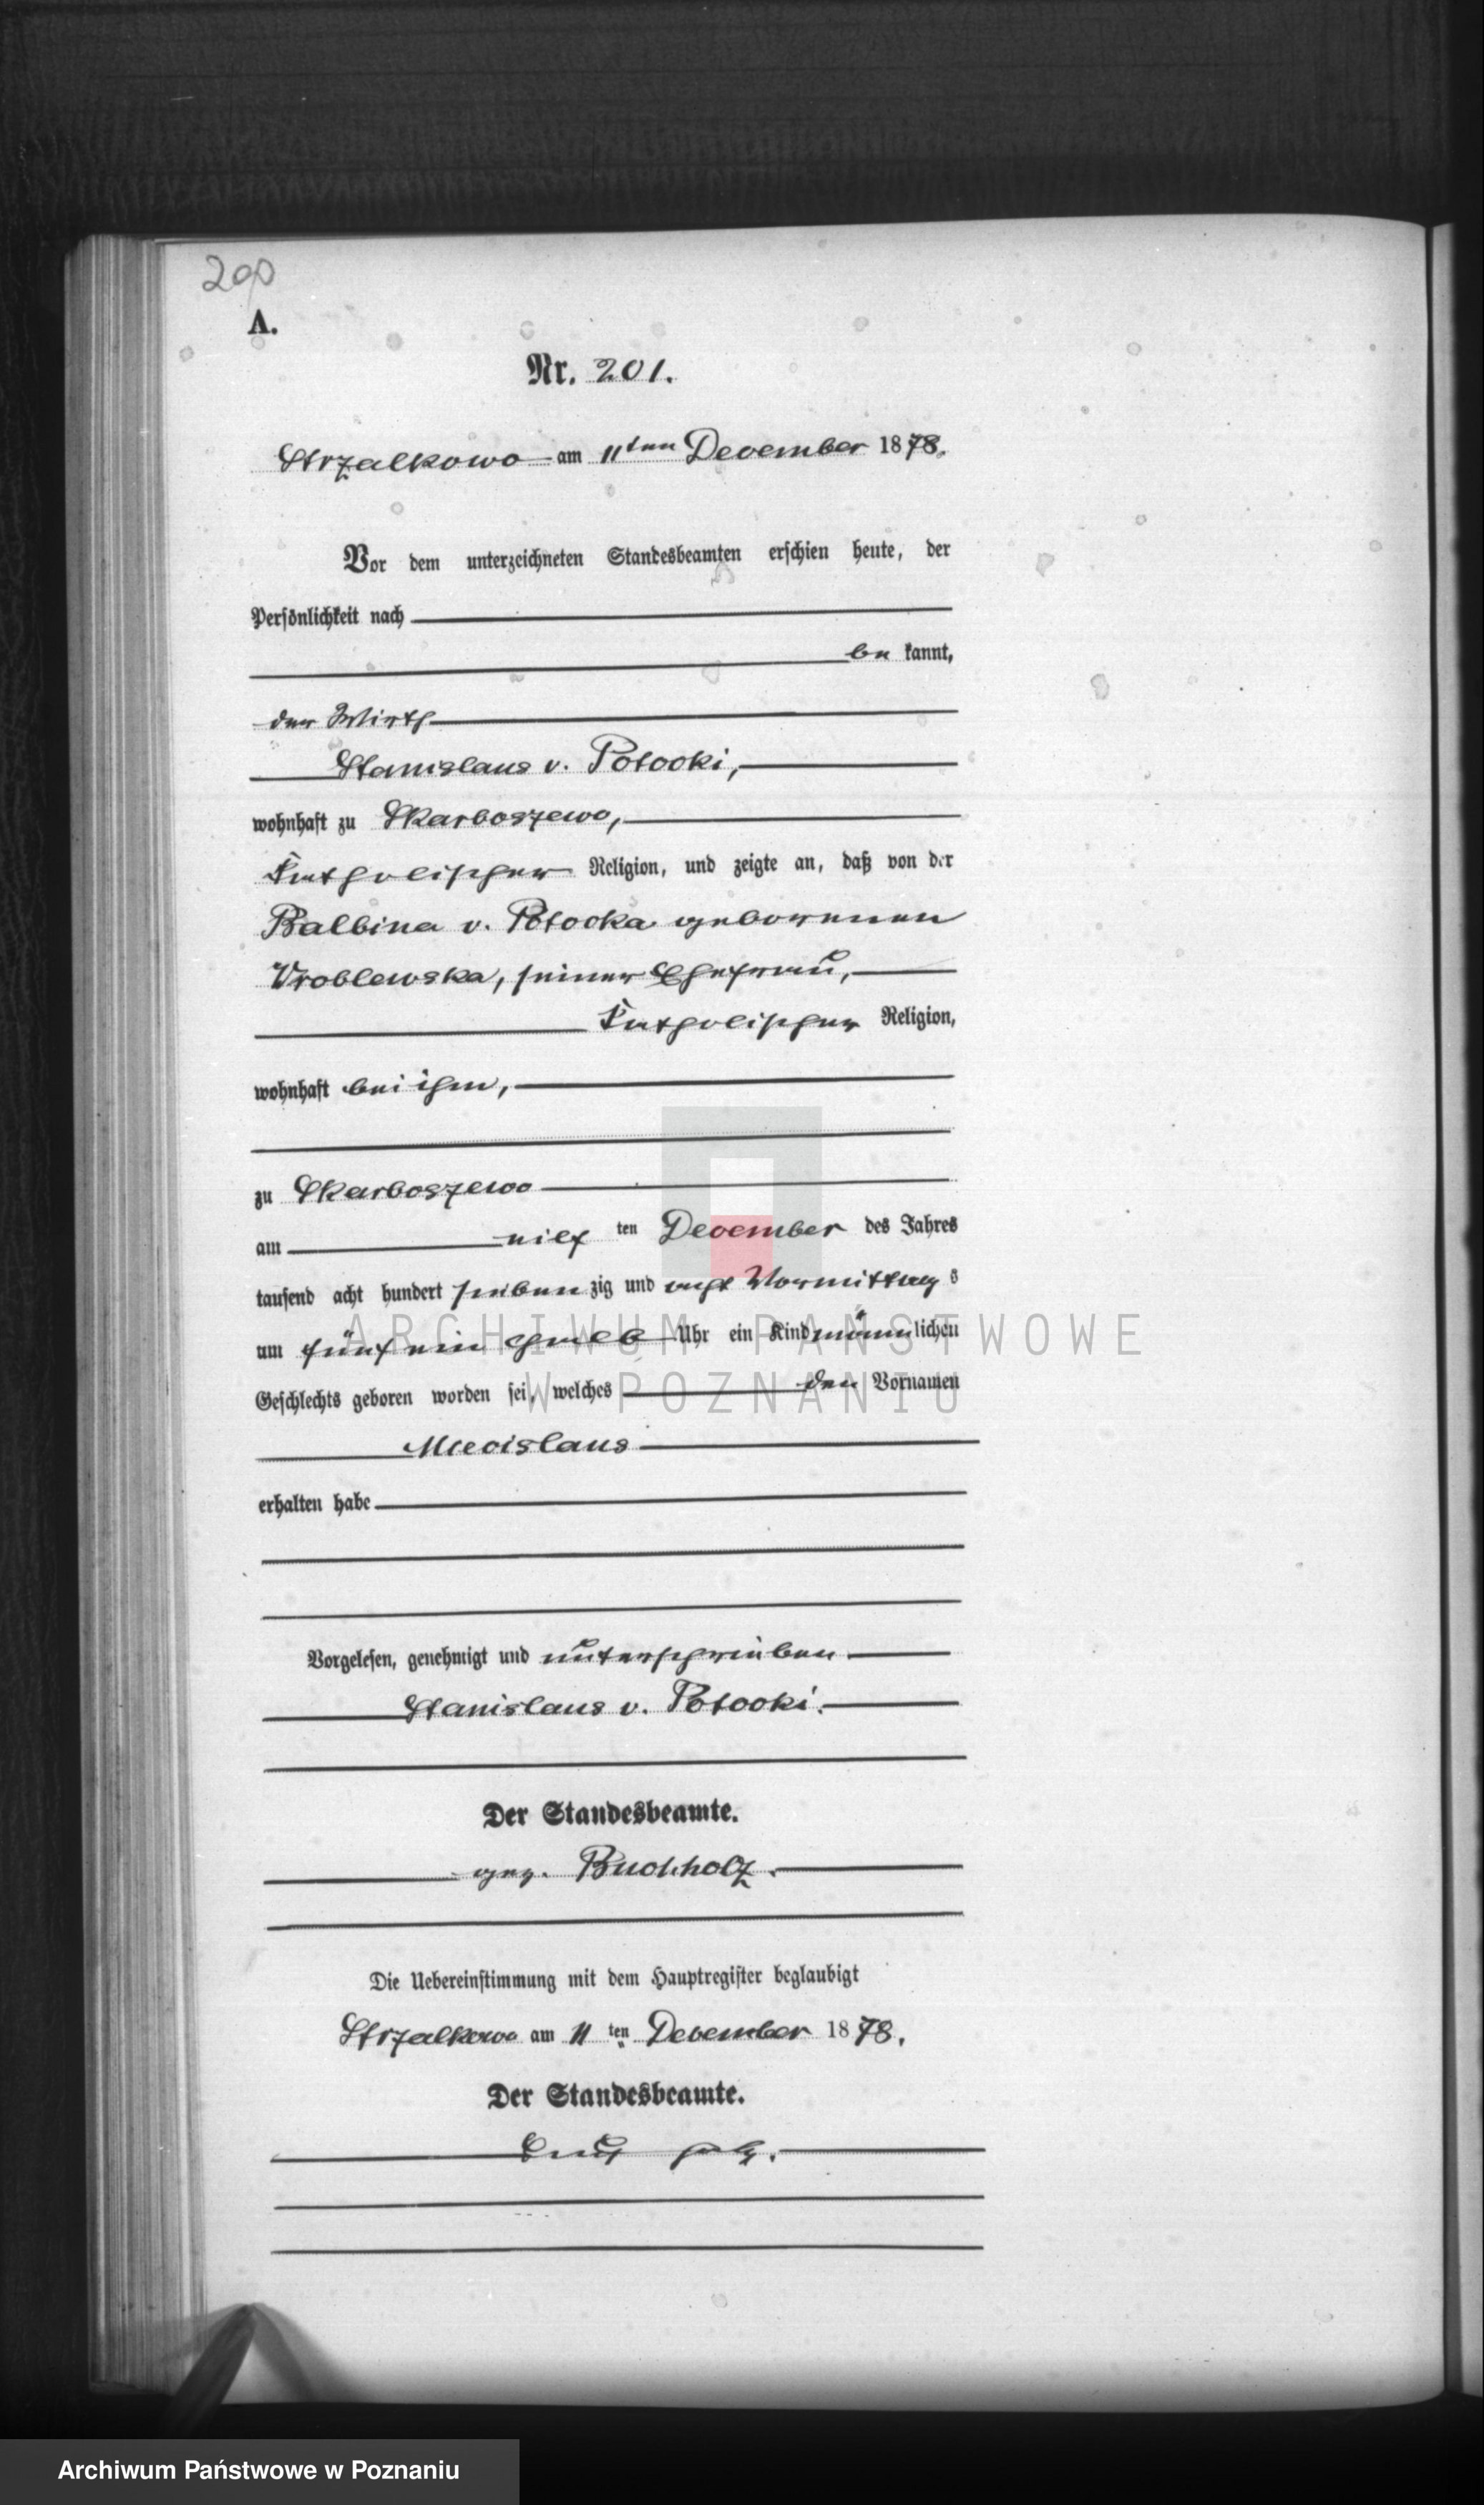 200
A.
Nr. 201.
Strzalkowo am 11ten December 1878.
Vor dem unterzeichneten Standesbeamten erschien heute, der
Persönlichkeit nach
be kannt,
der Wirth
Stanislaus v. Potocki,
wohnhaft zu Skarboszewo,
katholischer Religion, und zeigte an, daß von der
Balbina v. Potocka geborenen
Wroblewska, seiner Ehefrau,
katholischer Religion,
wohnhaft bei ihm,
zu Skarboszewo
am eilf ten December des Jahres
tausend acht hundert sieben zig und acht Vormittag s
um fünf ein halb Uhr ein Kind männlichen
Geschlechts geboren worden sei, welches den Vornamen
Miecislaus
erhalten habe
Vorgelesen, genehmigt und unterschrieben
Stanislaus v. Potocki.
Der Standesbeamte.
gez. Buchholz.
Die Uebereinstimmung mit dem Hauptregister beglaubigt
Strzalkowo am 11 ten December 1878.
Der Standesbeamte.
ARCHIWUM PAŃSTWOWE
W POZNANIU
Archiwum Państwowe w Poznaniu